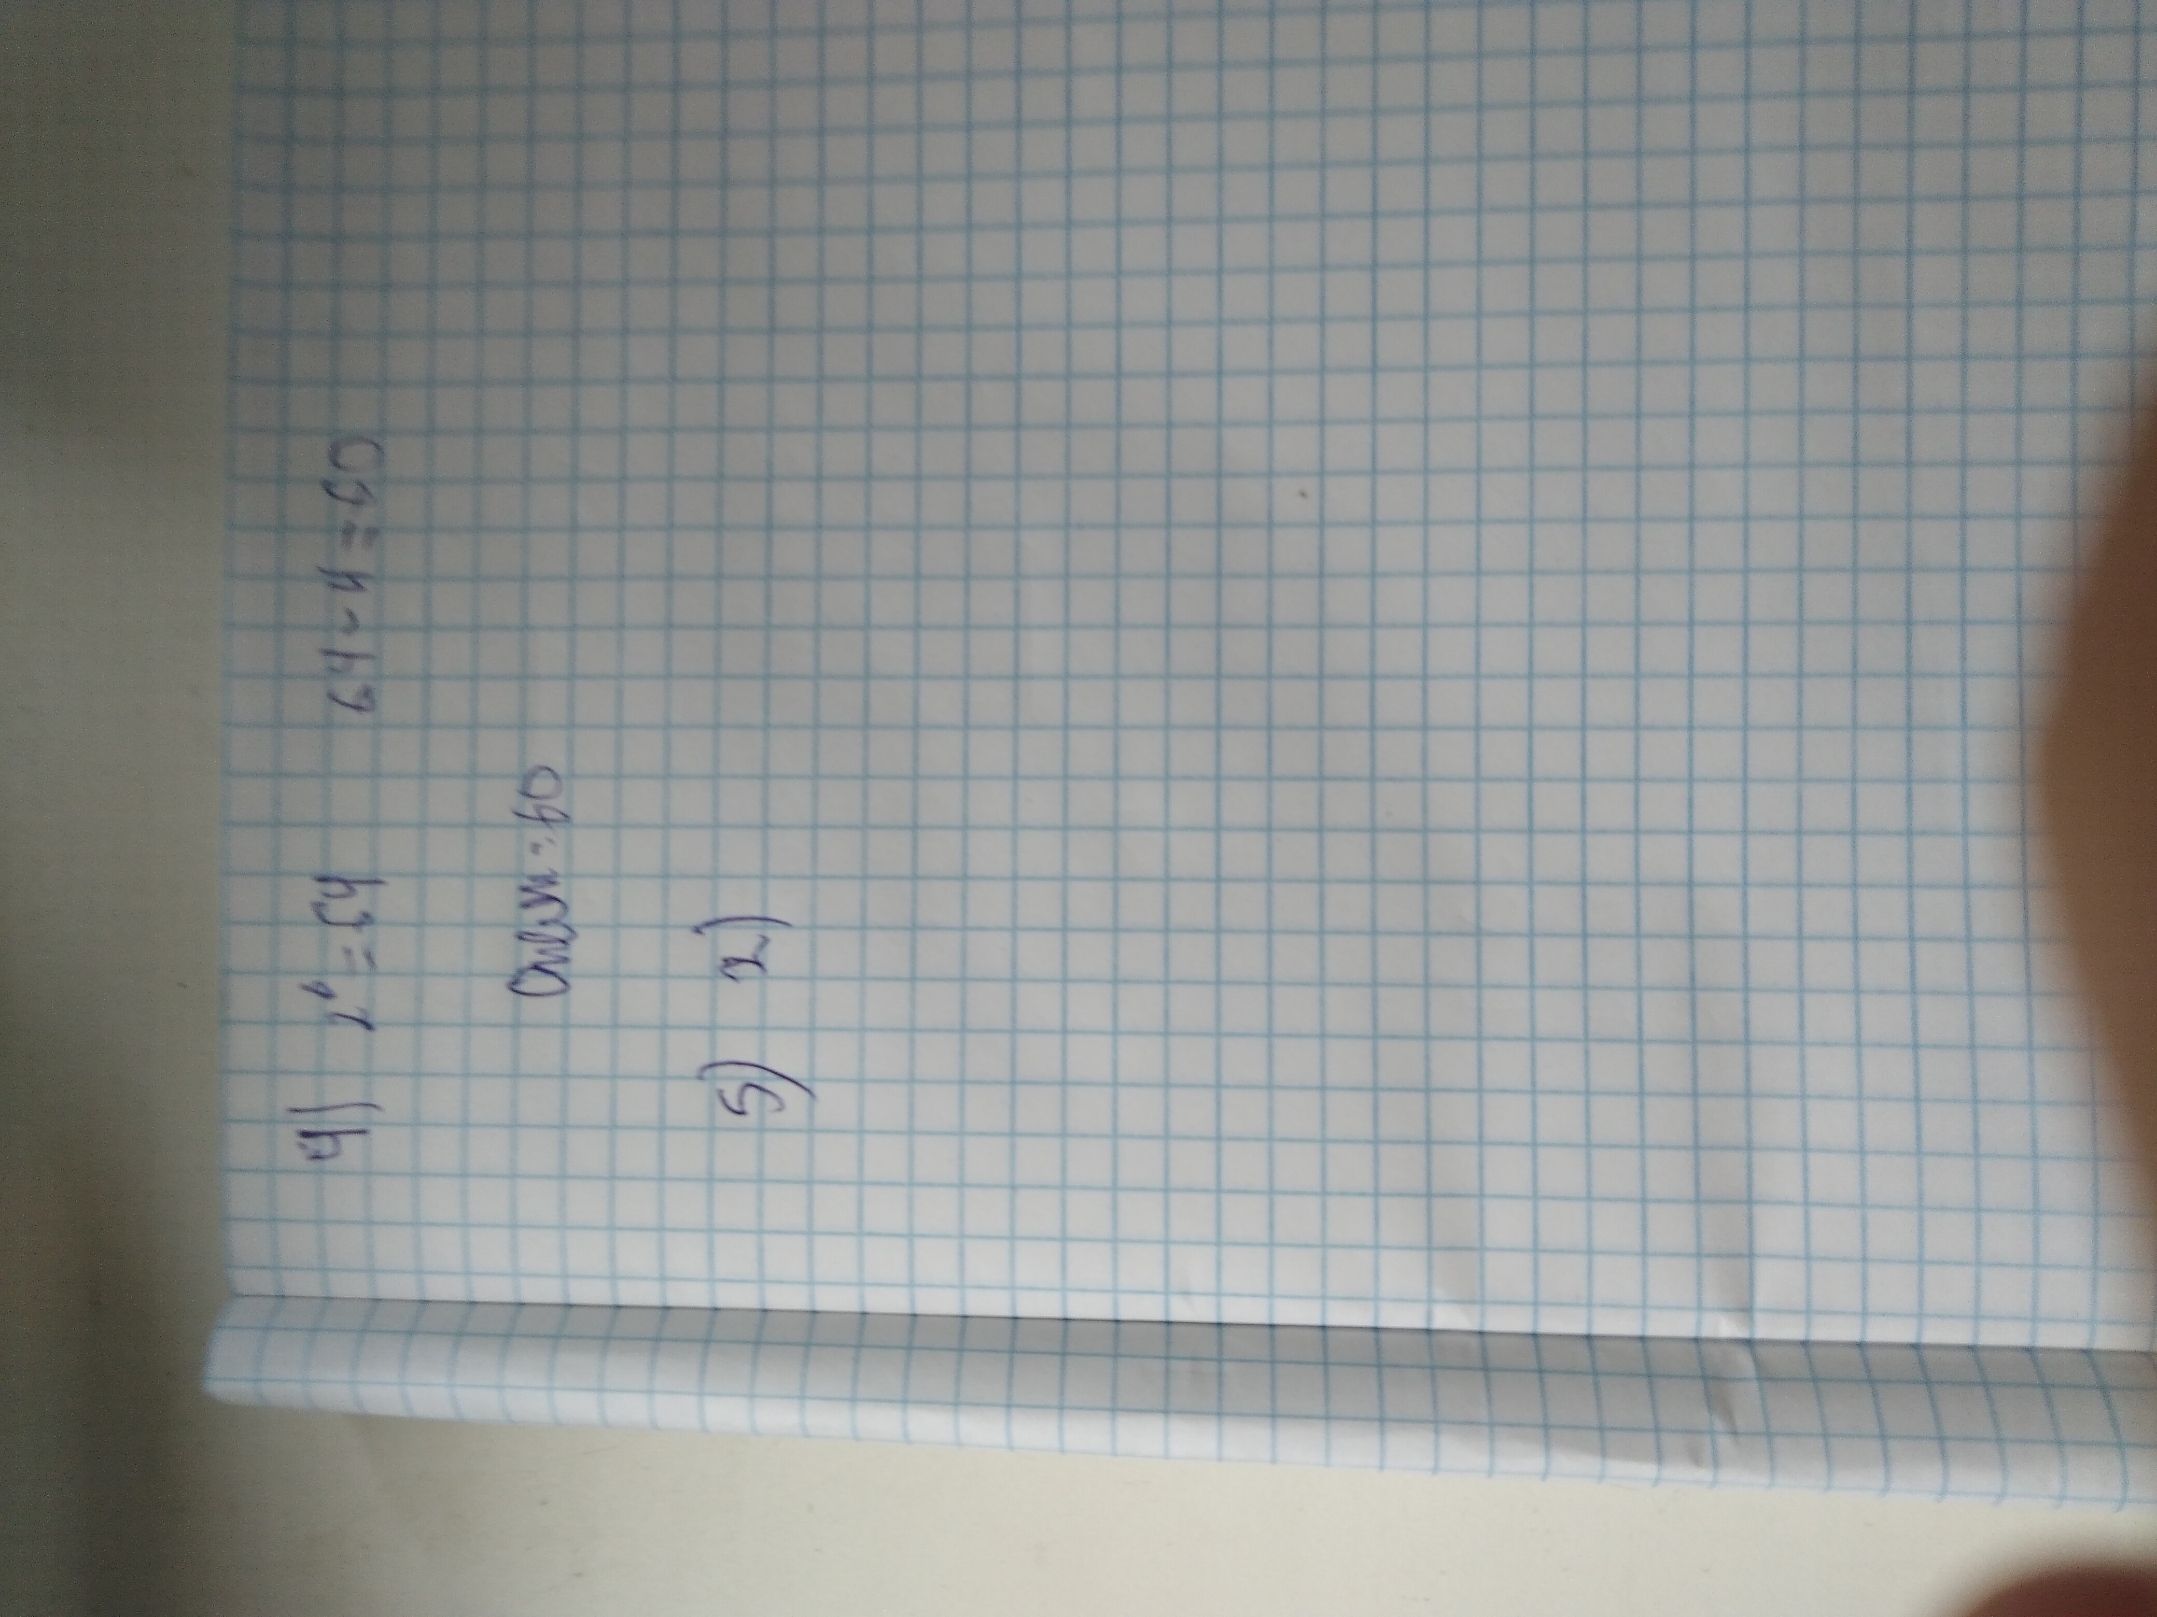 4) 2⁶ = 64 64 - 4 = 60
Ответ = 60
5) 2)